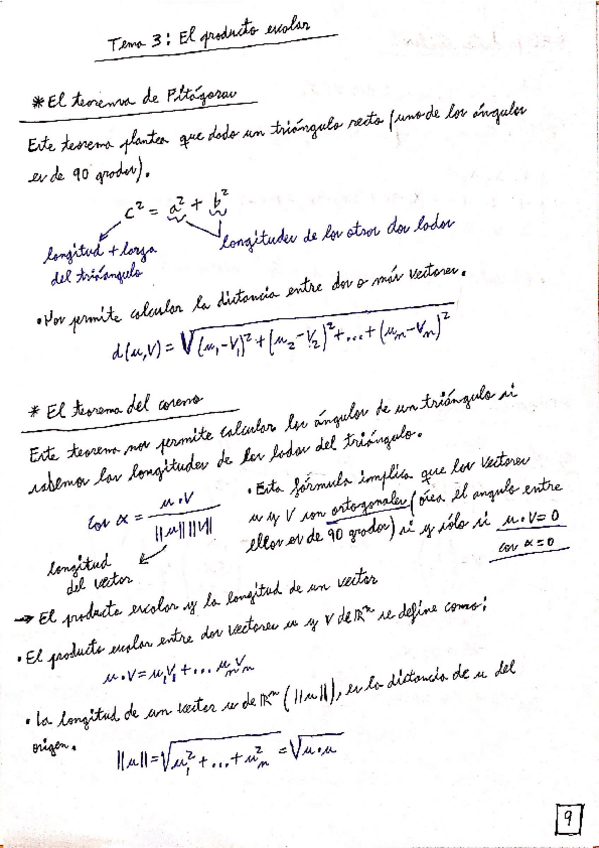 Tema 3: El producto escalar
* El teorema de Pitágoras
Este teorema plantea que dado un triángulo recto (uno de los ángulos
es de 90 grados).
c² = a² + b²
longitud + larga
del triángulo
longitudes de los otros dos lados
• Nos permite calcular la distancia entre dos o más vectores.
d(u,v) = √(u₁-v₁)² + (u₂-v₂)² + ... + (uₙ-vₙ)²
* El teorema del coseno
Este teorema nos permite calcular los ángulos de un triángulo si
sabemos las longitudes de los lados del triángulo.
cos α = u·v / ||u|| ||v||
longitud
del vector
• Esta fórmula implica que los vectores
u y v son ortogonales (ósea el angulo entre
ellos es de 90 grados) si y sólo si u·v=0
cos α=0
→ El producto escalar y la longitud de un vector
• El producto escalar entre dos vectores u y v de ℝⁿ se define como:
u·v = u₁v₁ + ... uₙvₙ
• La longitud de un vector u de ℝⁿ (||u||), es la distancia de u del
origen.
||u|| = √u₁² + ... + uₙ² = √u·u
9